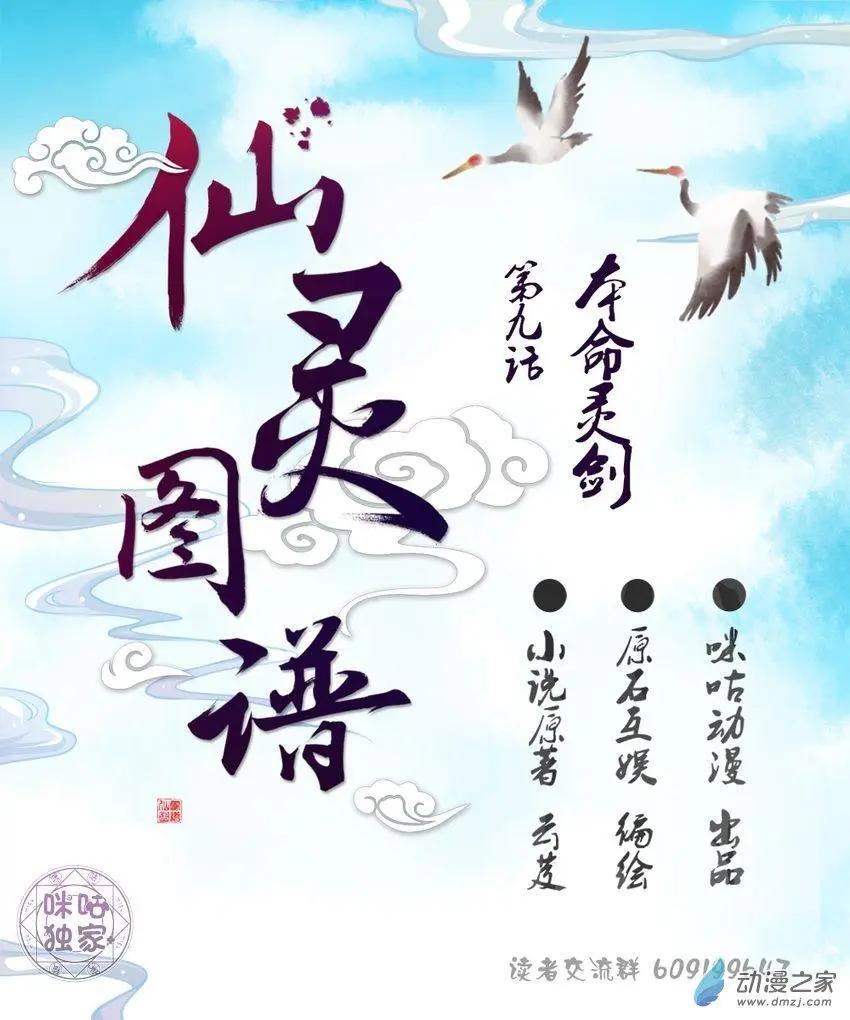 仙灵图谱
本命灵剑
第九话
咪咕动漫 出品
原石互娱 编绘
小说原著 云芨
咪咕
独家
读者交流群
动漫之家
www.dmzj.com